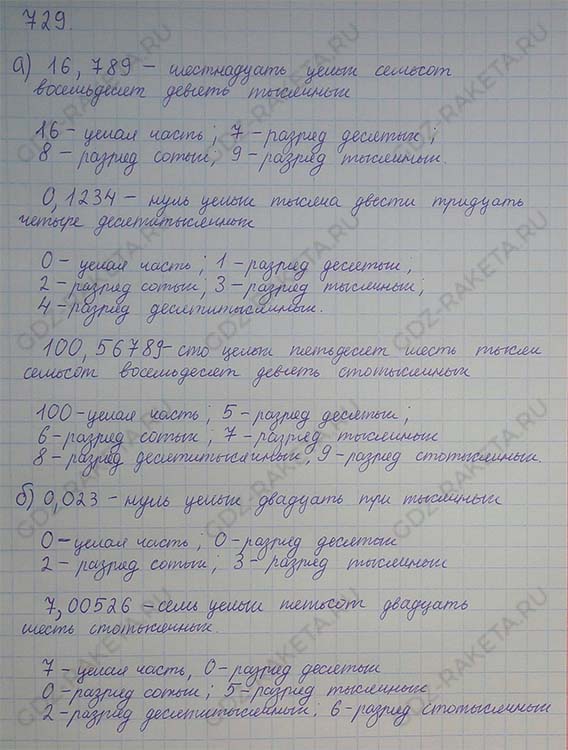 729.
а) 16,789 – шестнадцать целых семьсот
восемьдесят девять тысячных
16 – целая часть; 7 – разряд десятых;
8 – разряд сотых; 9 – разряд тысячных.
0,1234 – нуль целых тысяча двести тридцать
четыре десятитысячных
0 – целая часть; 1 – разряд десятых;
2 – разряд сотых; 3 – разряд тысячных;
4 – разряд десятитысячных.
100,56789 – сто целых пятьдесят шесть тысяч
семьсот восемьдесят девять стотысячных
100 – целая часть; 5 – разряд десятых;
6 – разряд сотых; 7 – разряд тысячных
8 – разряд десятитысячных, 9 – разряд стотысячных.
б) 0,023 – нуль целых двадцать три тысячных
0 – целая часть; 0 – разряд десятых
2 – разряд сотых; 3 – разряд тысячных
7,00526 – семь целых пятьсот двадцать
шесть стотысячных.
7 – целая часть, 0 – разряд десятых
0 – разряд сотых; 5 – разряд тысячных
2 – разряд десятитысячных; 6 – разряд стотысячных
GDZ-RAKETA.RU